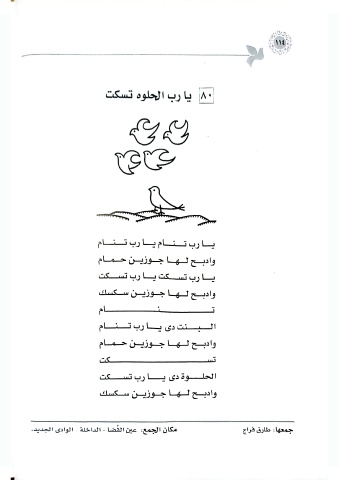 ١١٤
٨٠ يا رب الحلوه تسكت
يا رب تنام يا رب تنام
وادبح لها جوزين حمام
يا رب تسكت يا رب تسكت
وادبح لها جوزين سكسك
تنـــــــــام
البنت دى يا رب تنام
وادبح لها جوزين حمام
تســـــــــكت
الحلوة دى يا رب تسكت
وادبح لها جوزين سكسك
جمعها: طارق فراج
مكان الجمع: عين القضا - الداخلة - الوادى الجديد.